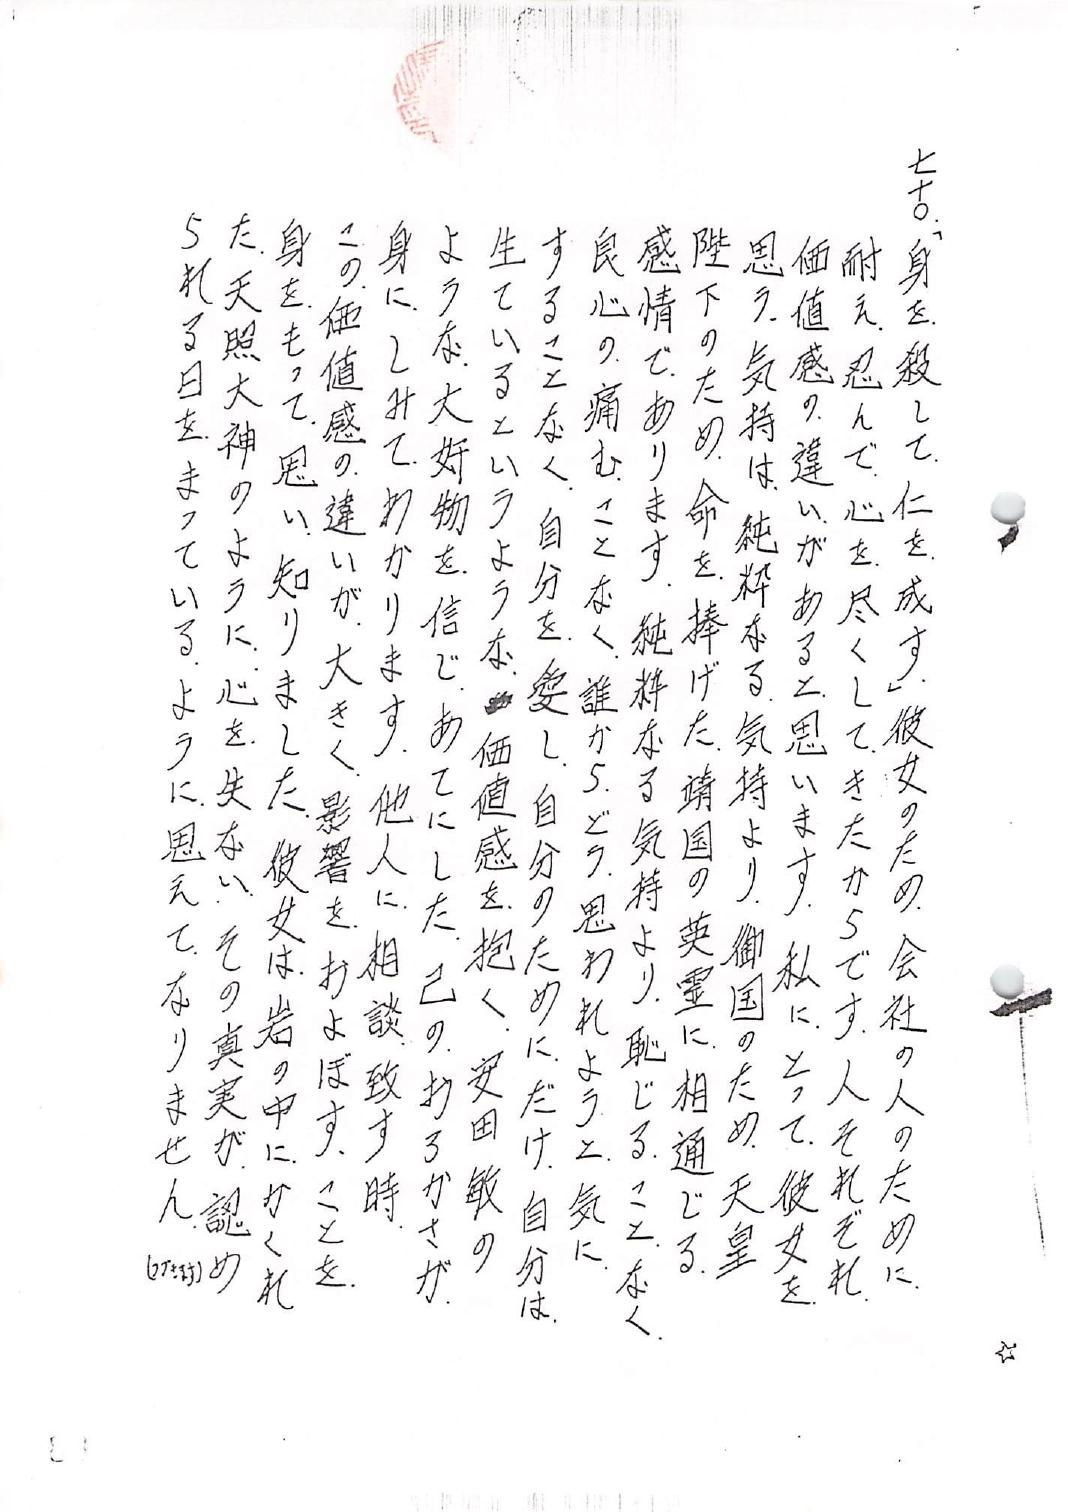 七十。「身を殺して、仁を成す」彼女のため、会社の人のために、
耐え、忍んで、心を尽くして、きたからです。人それぞれ、
価値感の、違いがあると、思います。私に、とって、彼女を、
思う、気持は、純粋なる、気持より、御国のため、天皇
陛下のため、命を、捧げた、靖国の英霊に、相通じる、
感情であります。純粋なる気持より、恥じること、なく、
良心の、痛む、こと、なく、誰から、どう、思われようと、気に、
することなく、自分を、愛し、自分のためにだけ、自分は、
生ているというような、価値感を、抱く、安田敏の
ような、大奸物を、信じ、あてにした、己の、おろかさが、
身に、しみて、わかります。他人に、相談、致す時、
この、価値感の、違いが、大きく、影響を、およぼす、ことを、
身を、もって、思い、知りました。彼女は、岩の中に、かくれ
た、天照大神のように、心を、失ない、その真実が、認め
られる日を、まっている、ように、思えて、なりません。